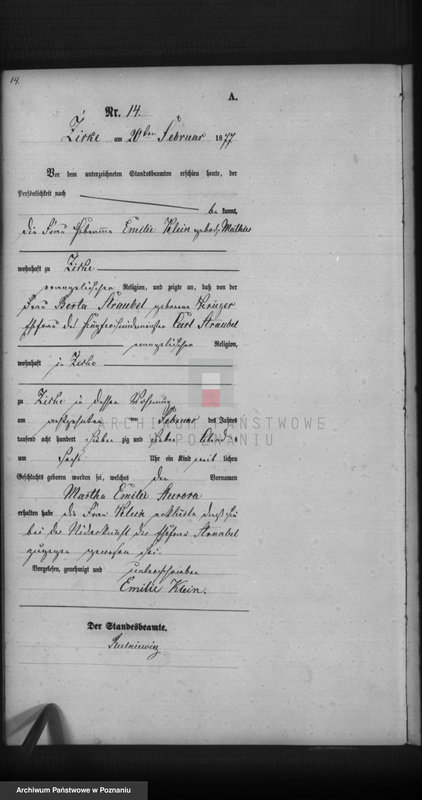 14.
A.
Nr. 14.
Zirke am 20ten Februar 1877
Vor dem unterzeichneten Standesbeamten erschien heute, der
Persönlichkeit nach
bekannt,
die Frau Hebamme Emilie Klein geborene Mathias
wohnhaft zu Zirke
evangelischer Religion, und zeigte an, daß von der
Frau Berta Straubel geborene Krüger
Ehefrau des Carl Straubel
evangelischer Religion,
wohnhaft in Zirke
zu Zirke in dessen Wohnung
am achtzehnten ten Februar des Jahres
tausend acht hundert sieben zig und sieben Abends
um sechs Uhr ein Kind weiblichen
Geschlechts geboren worden sei, welches den Vornamen
Martha Emilie Aurora
erhalten habe die Frau Klein erklärte daß sie
bei der Niederkunft der Ehefrau Straubel
zugegen gewesen sei.
Vorgelesen, genehmigt und unterschrieben
Emilie Klein.
Der Standesbeamte.
ARCHIWUM PAŃSTWOWE
W POZNANIU
Archiwum Państwowe w Poznaniu